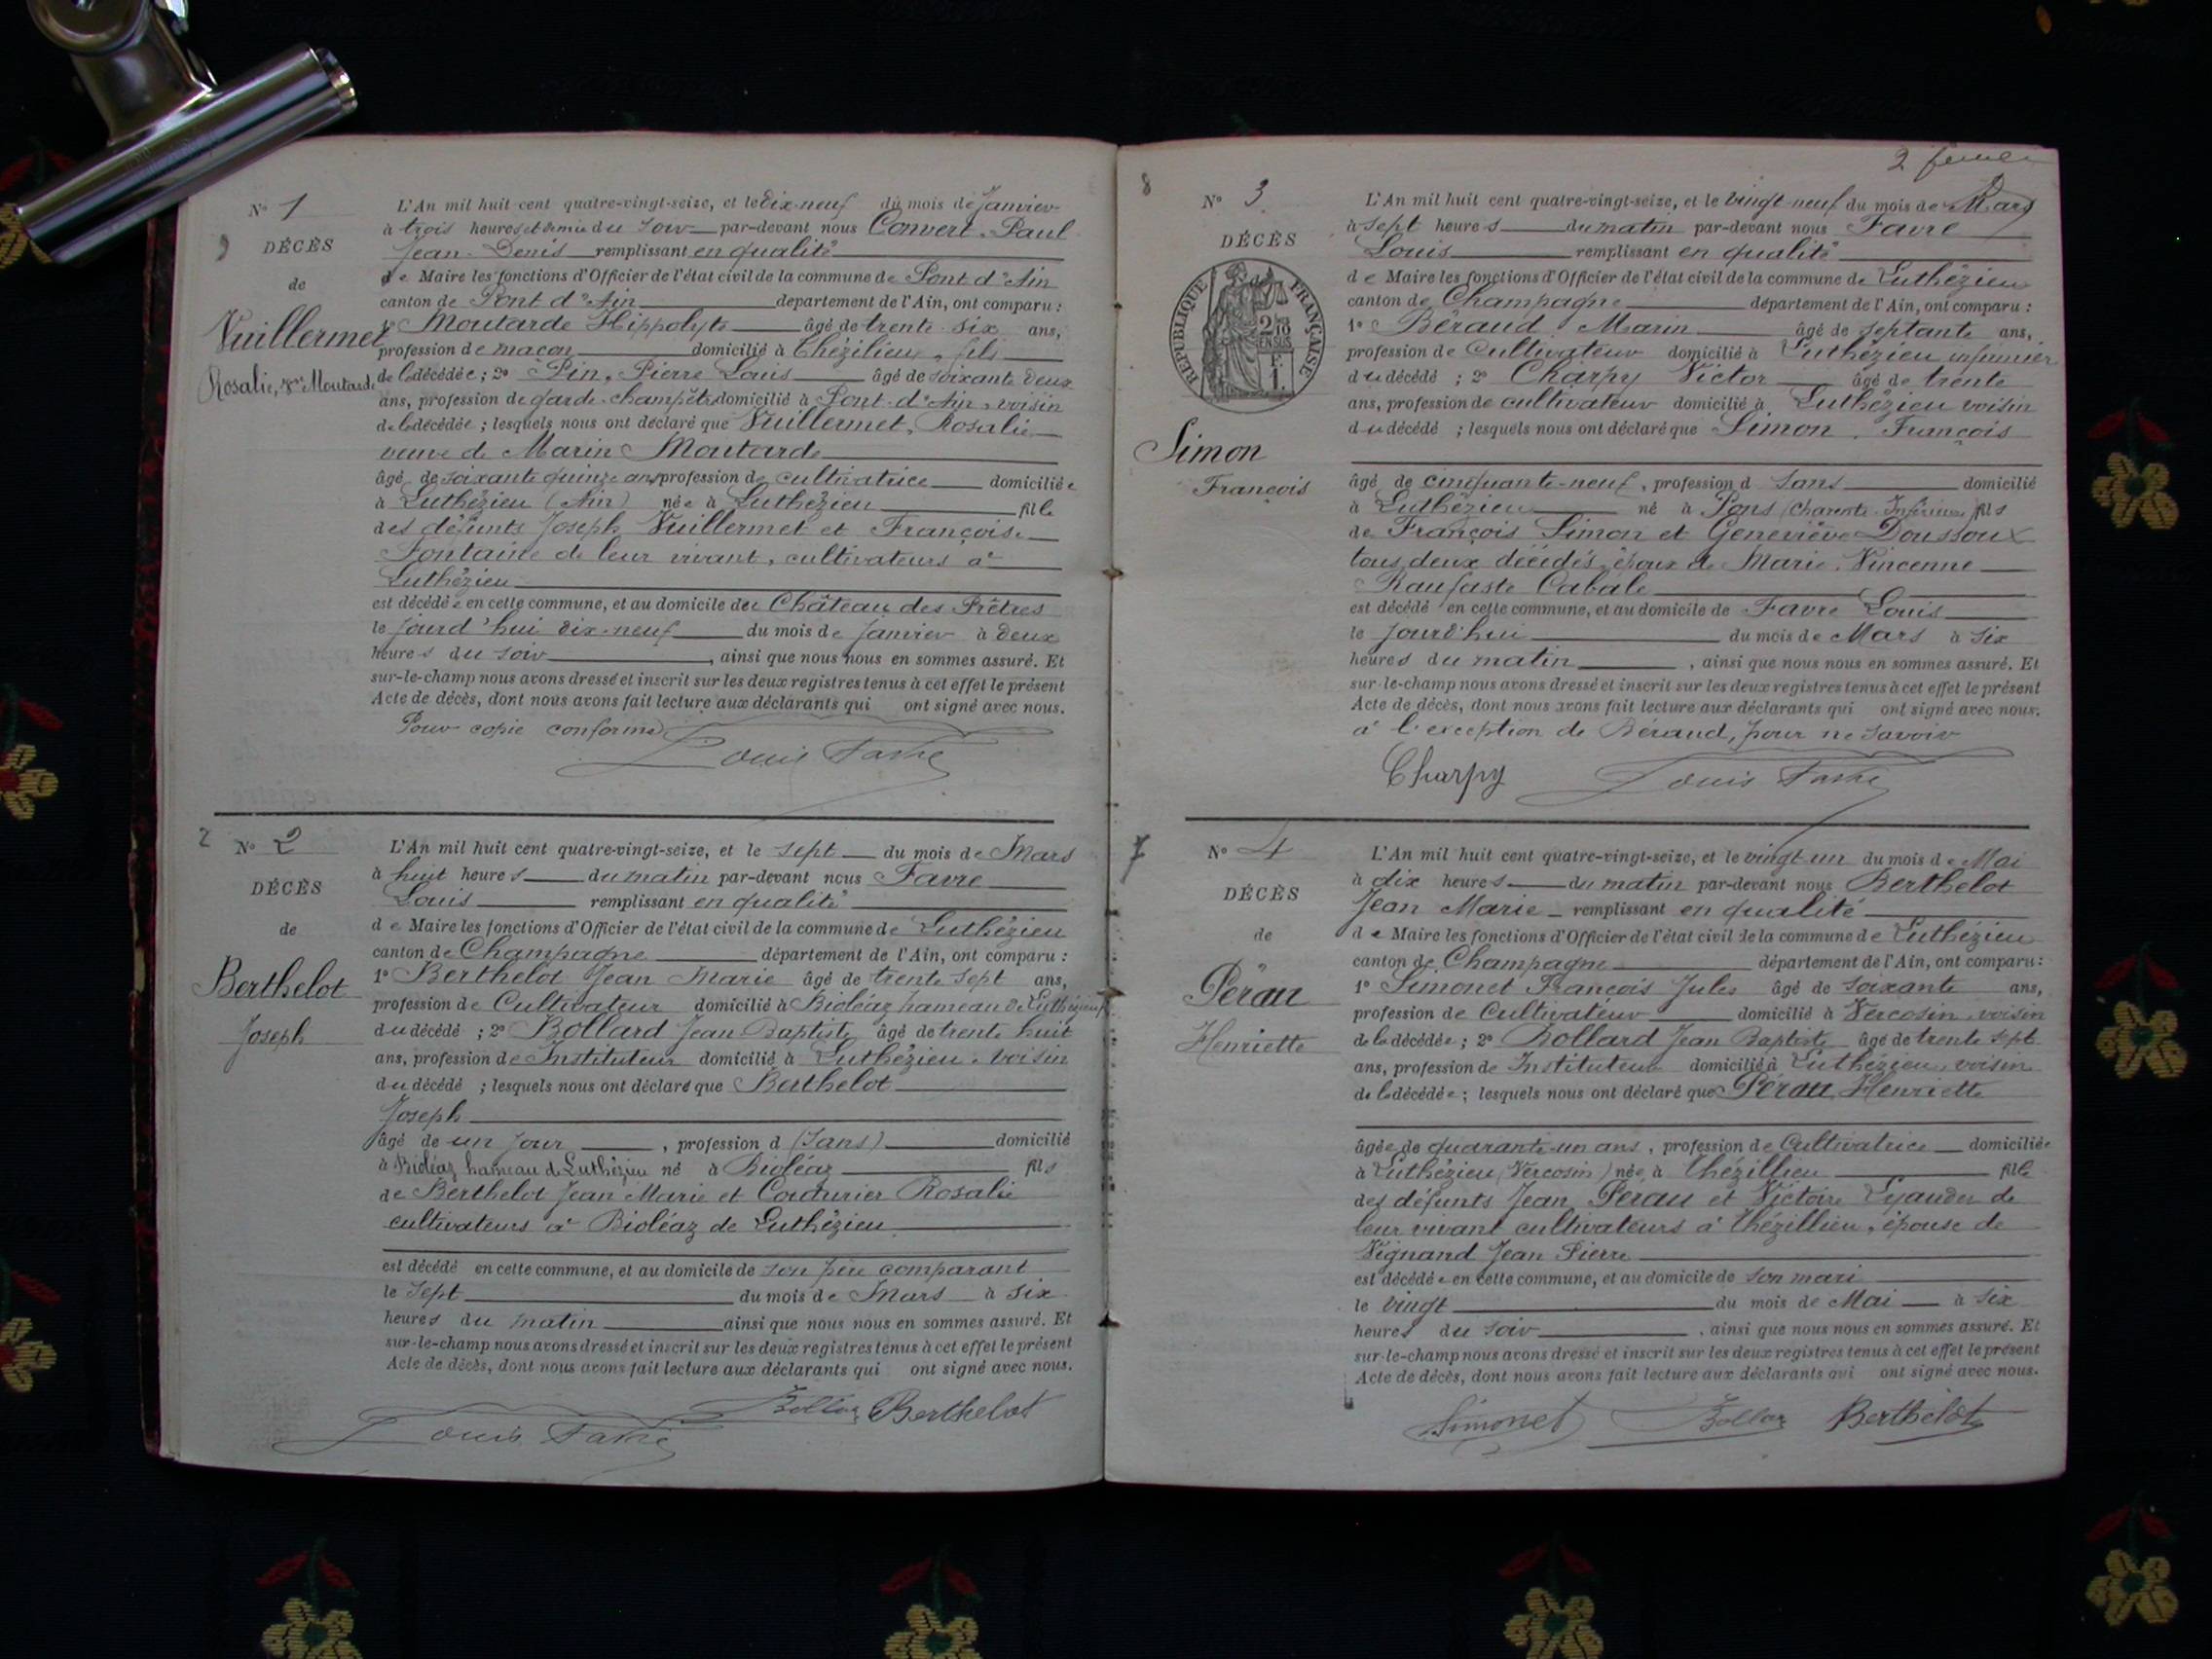 N° 1
DÉCÈS
de
Vuillermet
Rosalie, Vve Moutarde
L'An mil huit cent quatre-vingt-seize, et le dix-neuf du mois de Janvier
à trois heures et demie du soir par-devant nous Convert Paul
Jean-Denis remplissant en qualité
de Maire les fonctions d'Officier de l'état civil de la commune de Pont d'Ain
canton de Pont d'Ain département de l'Ain, ont comparu :
1° Moutarde Hippolyte âgé de trente six ans,
profession de maçon domicilié à Thézilieu, fils
de la décédée ; 2° Pin, Pierre Louis âgé de soixante deux
ans, profession de garde-champêtre domicilié à Pont-d'Ain, voisin
de la décédée ; lesquels nous ont déclaré que Vuillermet, Rosalie
veuve de Marin Moutarde
âgé de soixante quinze ans profession de cultivatrice domiciliée
à Luthézieu (Ain) née à Luthézieu fille
des défunts Joseph Vuillermet et Françoise
Fontaine de leur vivant, cultivateurs à
Luthézieu
est décédée en cette commune, et au domicile du Château des Prêtres
le jourd'hui dix-neuf du mois de Janvier à deux
heures du soir, ainsi que nous nous en sommes assuré. Et
sur-le-champ nous avons dressé et inscrit sur les deux registres tenus à cet effet le présent
Acte de décès, dont nous avons fait lecture aux déclarants qui ont signé avec nous.
Pour copie conforme
Louis Favre
2
N° 2
DÉCÈS
de
Berthelot
Joseph
L'An mil huit cent quatre-vingt-seize, et le sept du mois de Mars
à huit heures du matin par-devant nous Favre
Louis remplissant en qualité
de Maire les fonctions d'Officier de l'état civil de la commune de Luthézieu
canton de Champagne département de l'Ain, ont comparu :
1° Berthelot Jean Marie âgé de trente sept ans,
profession de Cultivateur domicilié à Bioléaz hameau de Luthézieu
du décédé ; 2° Bollard Jean Baptiste âgé de trente huit
ans, profession de Instituteur domicilié à Luthézieu, voisin
du décédé ; lesquels nous ont déclaré que Berthelot
Joseph
âgé de un jour, profession d (sans) domicilié
à Bioléaz hameau de Luthézieu né à Bioléaz fils
de Berthelot Jean Marie et Couturier Rosalie
cultivateurs à Bioléaz de Luthézieu
est décédé en cette commune, et au domicile de son père comparant
le sept du mois de Mars à six
heures du matin ainsi que nous nous en sommes assuré. Et
sur-le-champ nous avons dressé et inscrit sur les deux registres tenus à cet effet le présent
Acte de décès, dont nous avons fait lecture aux déclarants qui ont signé avec nous.
Bollar Berthelot
Louis Favre
8
N° 3
DÉCÈS
de
RÉPUBLIQUE FRANÇAISE
2/10 EN SUS
Simon
François
L'An mil huit cent quatre-vingt-seize, et le vingt-neuf du mois de Mars
à sept heures du matin par-devant nous Favre
Louis remplissant en qualité
de Maire les fonctions d'Officier de l'état civil de la commune de Luthézieu
canton de Champagne département de l'Ain, ont comparu :
1° Béraud Marin âgé de septante ans,
profession de Cultivateur domicilié à Luthézieu infirmier
du décédé ; 2° Charpy Victor âgé de trente
ans, profession de cultivateur domicilié à Luthézieu voisin
du décédé ; lesquels nous ont déclaré que Simon, François
âgé de cinquante-neuf, profession d sans domicilié
à Luthézieu né à Pons (Charente-Inférieure) fils
de François Simon et Geneviève Doussoux
tous deux décédés, époux de Marie Vincenne
Raufaste Cabale
est décédé en cette commune, et au domicile de Favre Louis
le jourd'hui du mois de Mars à six
heures du matin, ainsi que nous nous en sommes assuré. Et
sur-le-champ nous avons dressé et inscrit sur les deux registres tenus à cet effet le présent
Acte de décès, dont nous avons fait lecture aux déclarants qui ont signé avec nous.
à l'exception de Béraud, pour ne savoir
Charpy Louis Favre
7
N° 4
DÉCÈS
de
Pérau
Henriette
L'An mil huit cent quatre-vingt-seize, et le vingt-un du mois de Mai
à dix heures du matin par-devant nous Berthelot
Jean Marie remplissant en qualité
de Maire les fonctions d'Officier de l'état civil de la commune de Luthézieu
canton de Champagne département de l'Ain, ont comparu :
1° Simonet François Jules âgé de soixante ans,
profession de Cultivateur domicilié à Vercosin, voisin
de la décédée ; 2° Bollard Jean Baptiste âgé de trente sept
ans, profession de Instituteur domicilié à Luthézieu, voisin
de la décédée ; lesquels nous ont déclaré que Pérau Henriette
âgée de quarante-un ans, profession de Cultivatrice domiciliée
à Luthézieu (Vercosin) née à Thézillieu fille
des défunts Jean Pérau et Victoire Lyauder de
leur vivant cultivateurs à Thézillieu, épouse de
Vignand Jean Pierre
est décédée en cette commune, et au domicile de son mari
le vingt du mois de Mai à six
heures du soir, ainsi que nous nous en sommes assuré. Et
sur-le-champ nous avons dressé et inscrit sur les deux registres tenus à cet effet le présent
Acte de décès, dont nous avons fait lecture aux déclarants qui ont signé avec nous.
Simonet Bollar Berthelot